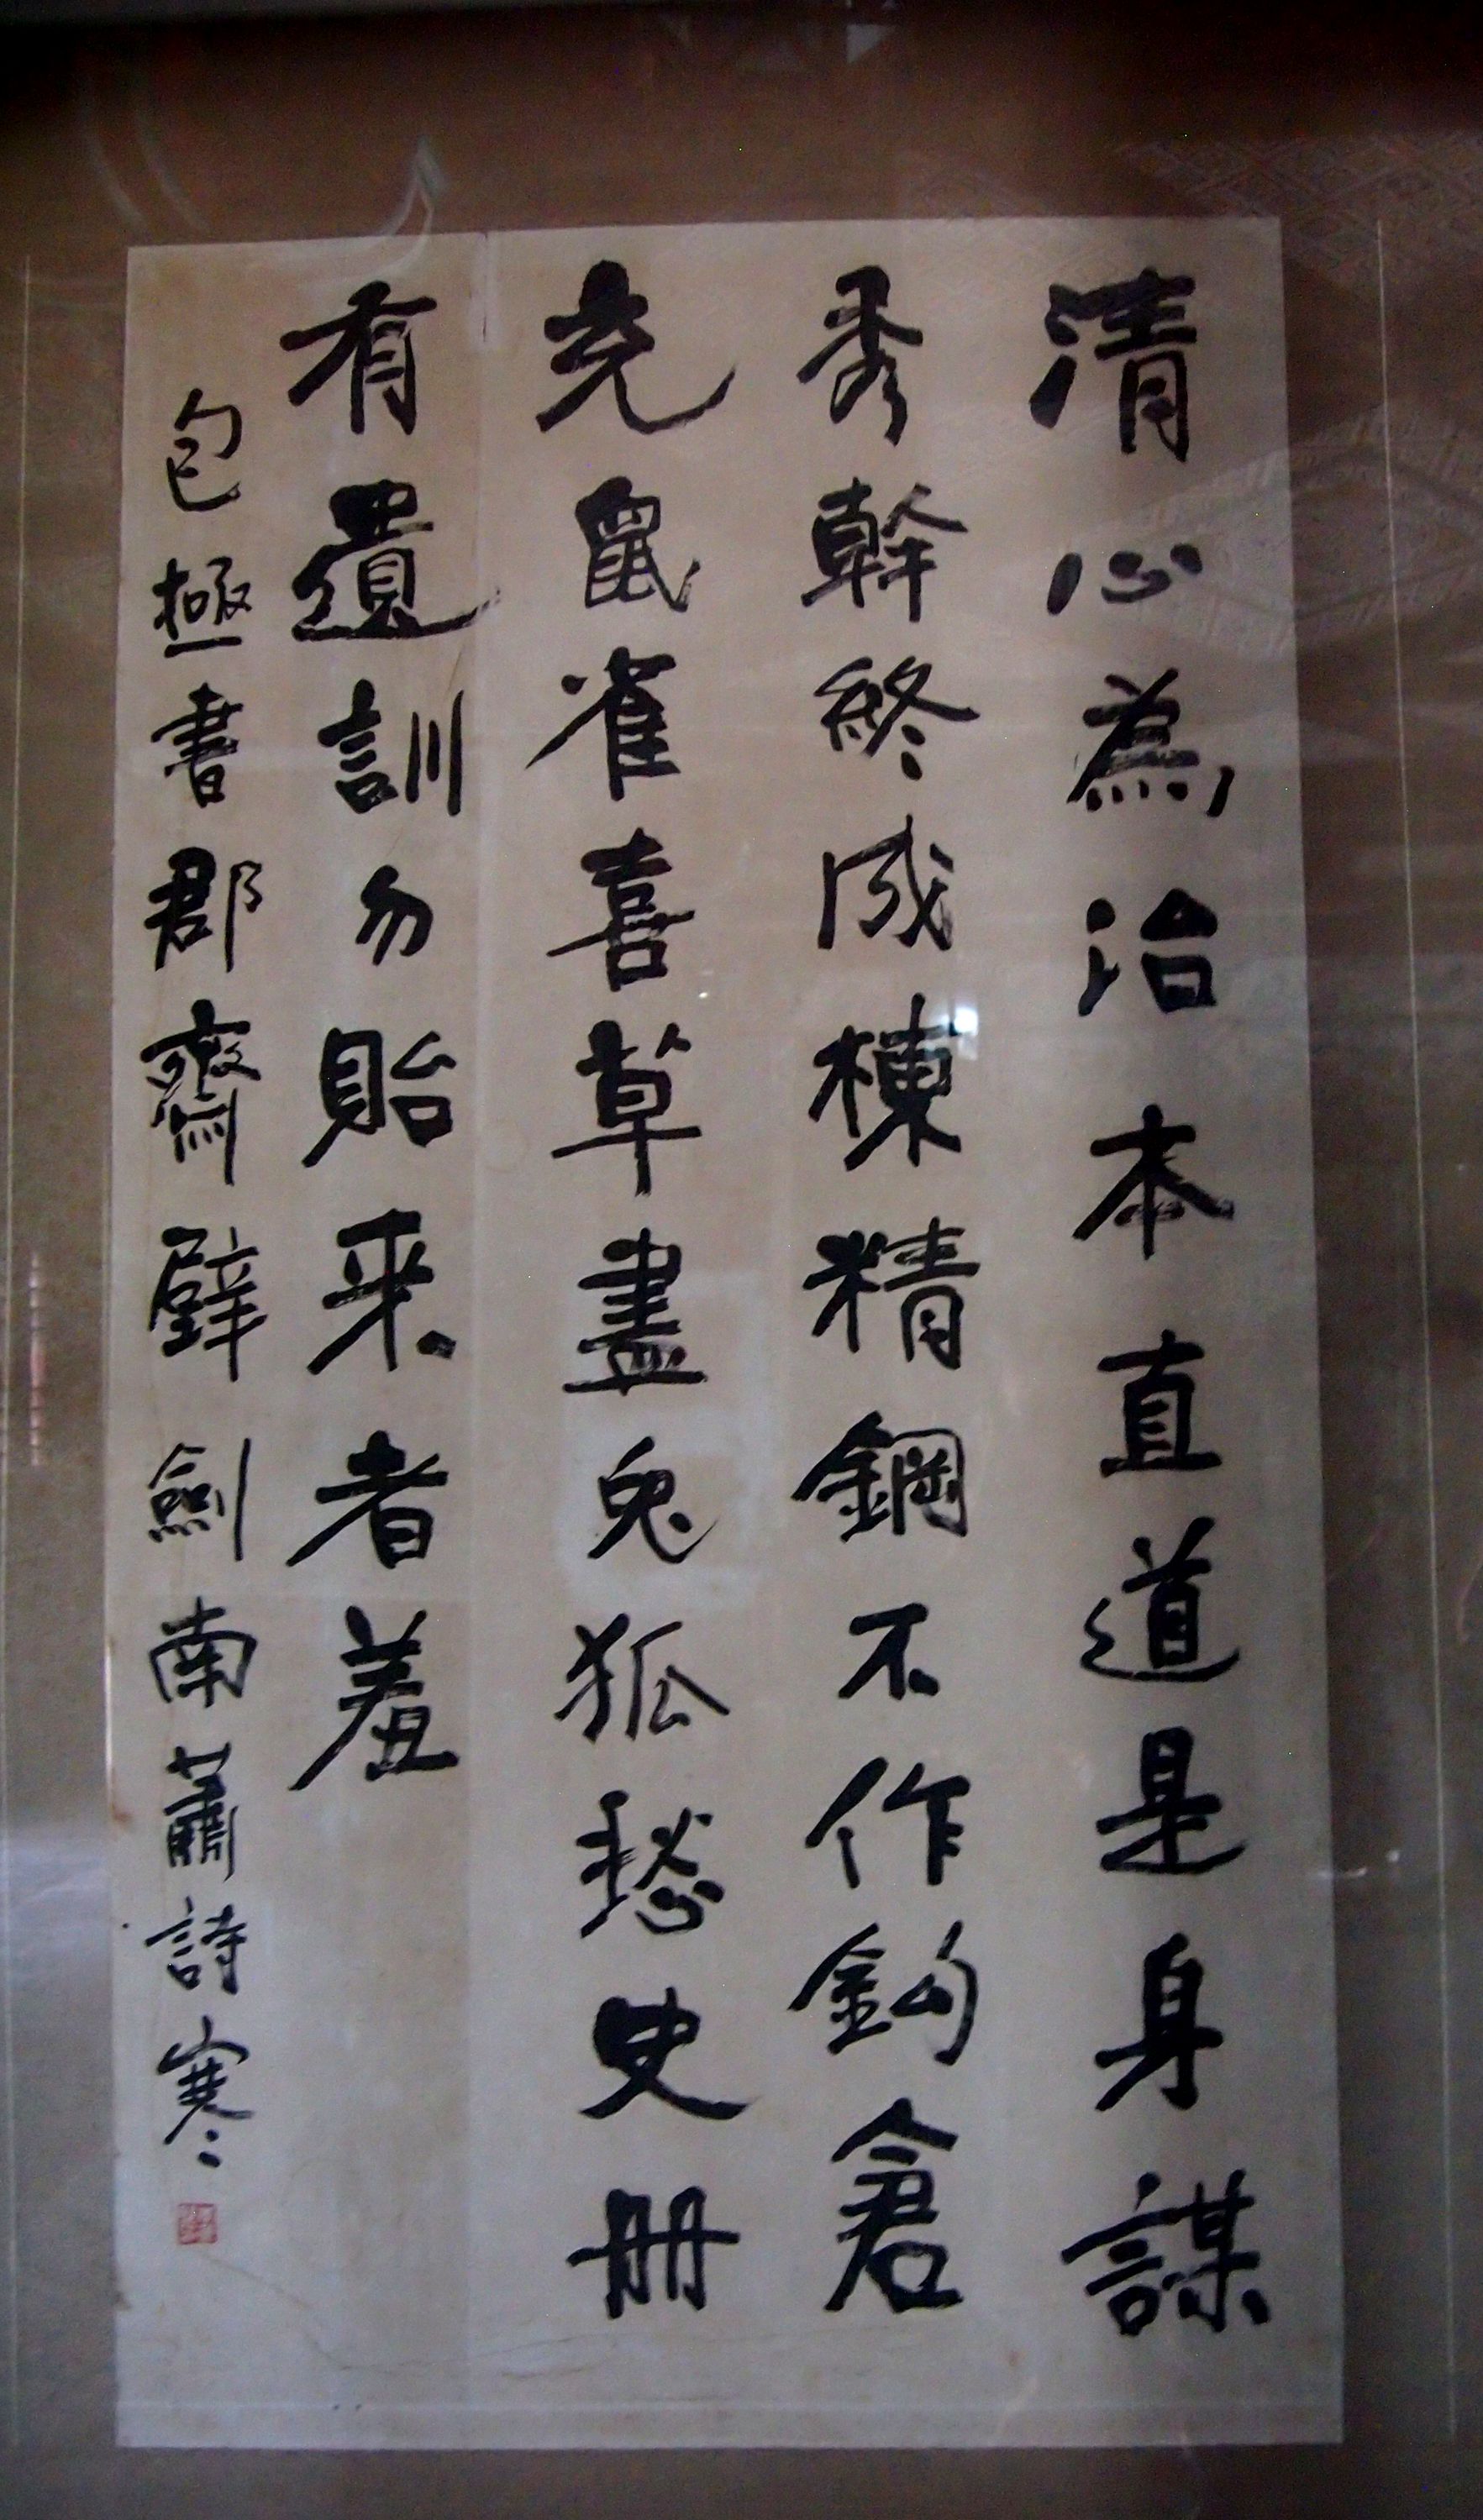 清心為治本直道是身謀
秀幹終成棟精鋼不作鈎倉
充鼠雀喜草盡兔狐愁史册
有遺訓勿貽来者羞
包極書郡齋壁劍南蕭詩寒